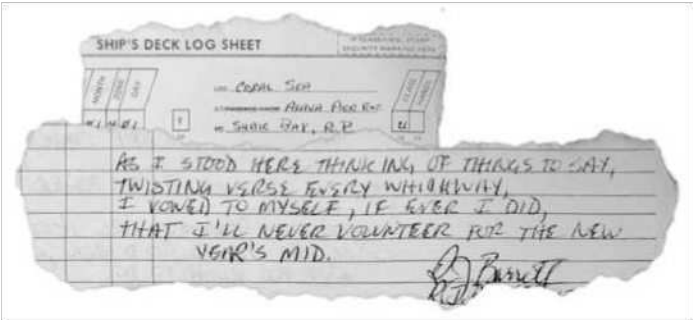 SHIP'S DECK LOG SHEET
MONTH
ZONE
DAY
USS CORAL SEA
ALAVA PIER
SUBIC BAY, R.P.
U
AS I STOOD HERE THINKING OF THINGS TO SAY,
TWISTING VERSE EVERY WHICHWAY,
I VOWED TO MYSELF, IF EVER I DID,
THAT I'LL NEVER VOLUNTEER FOR THE NEW
YEAR'S MID.
Barrett